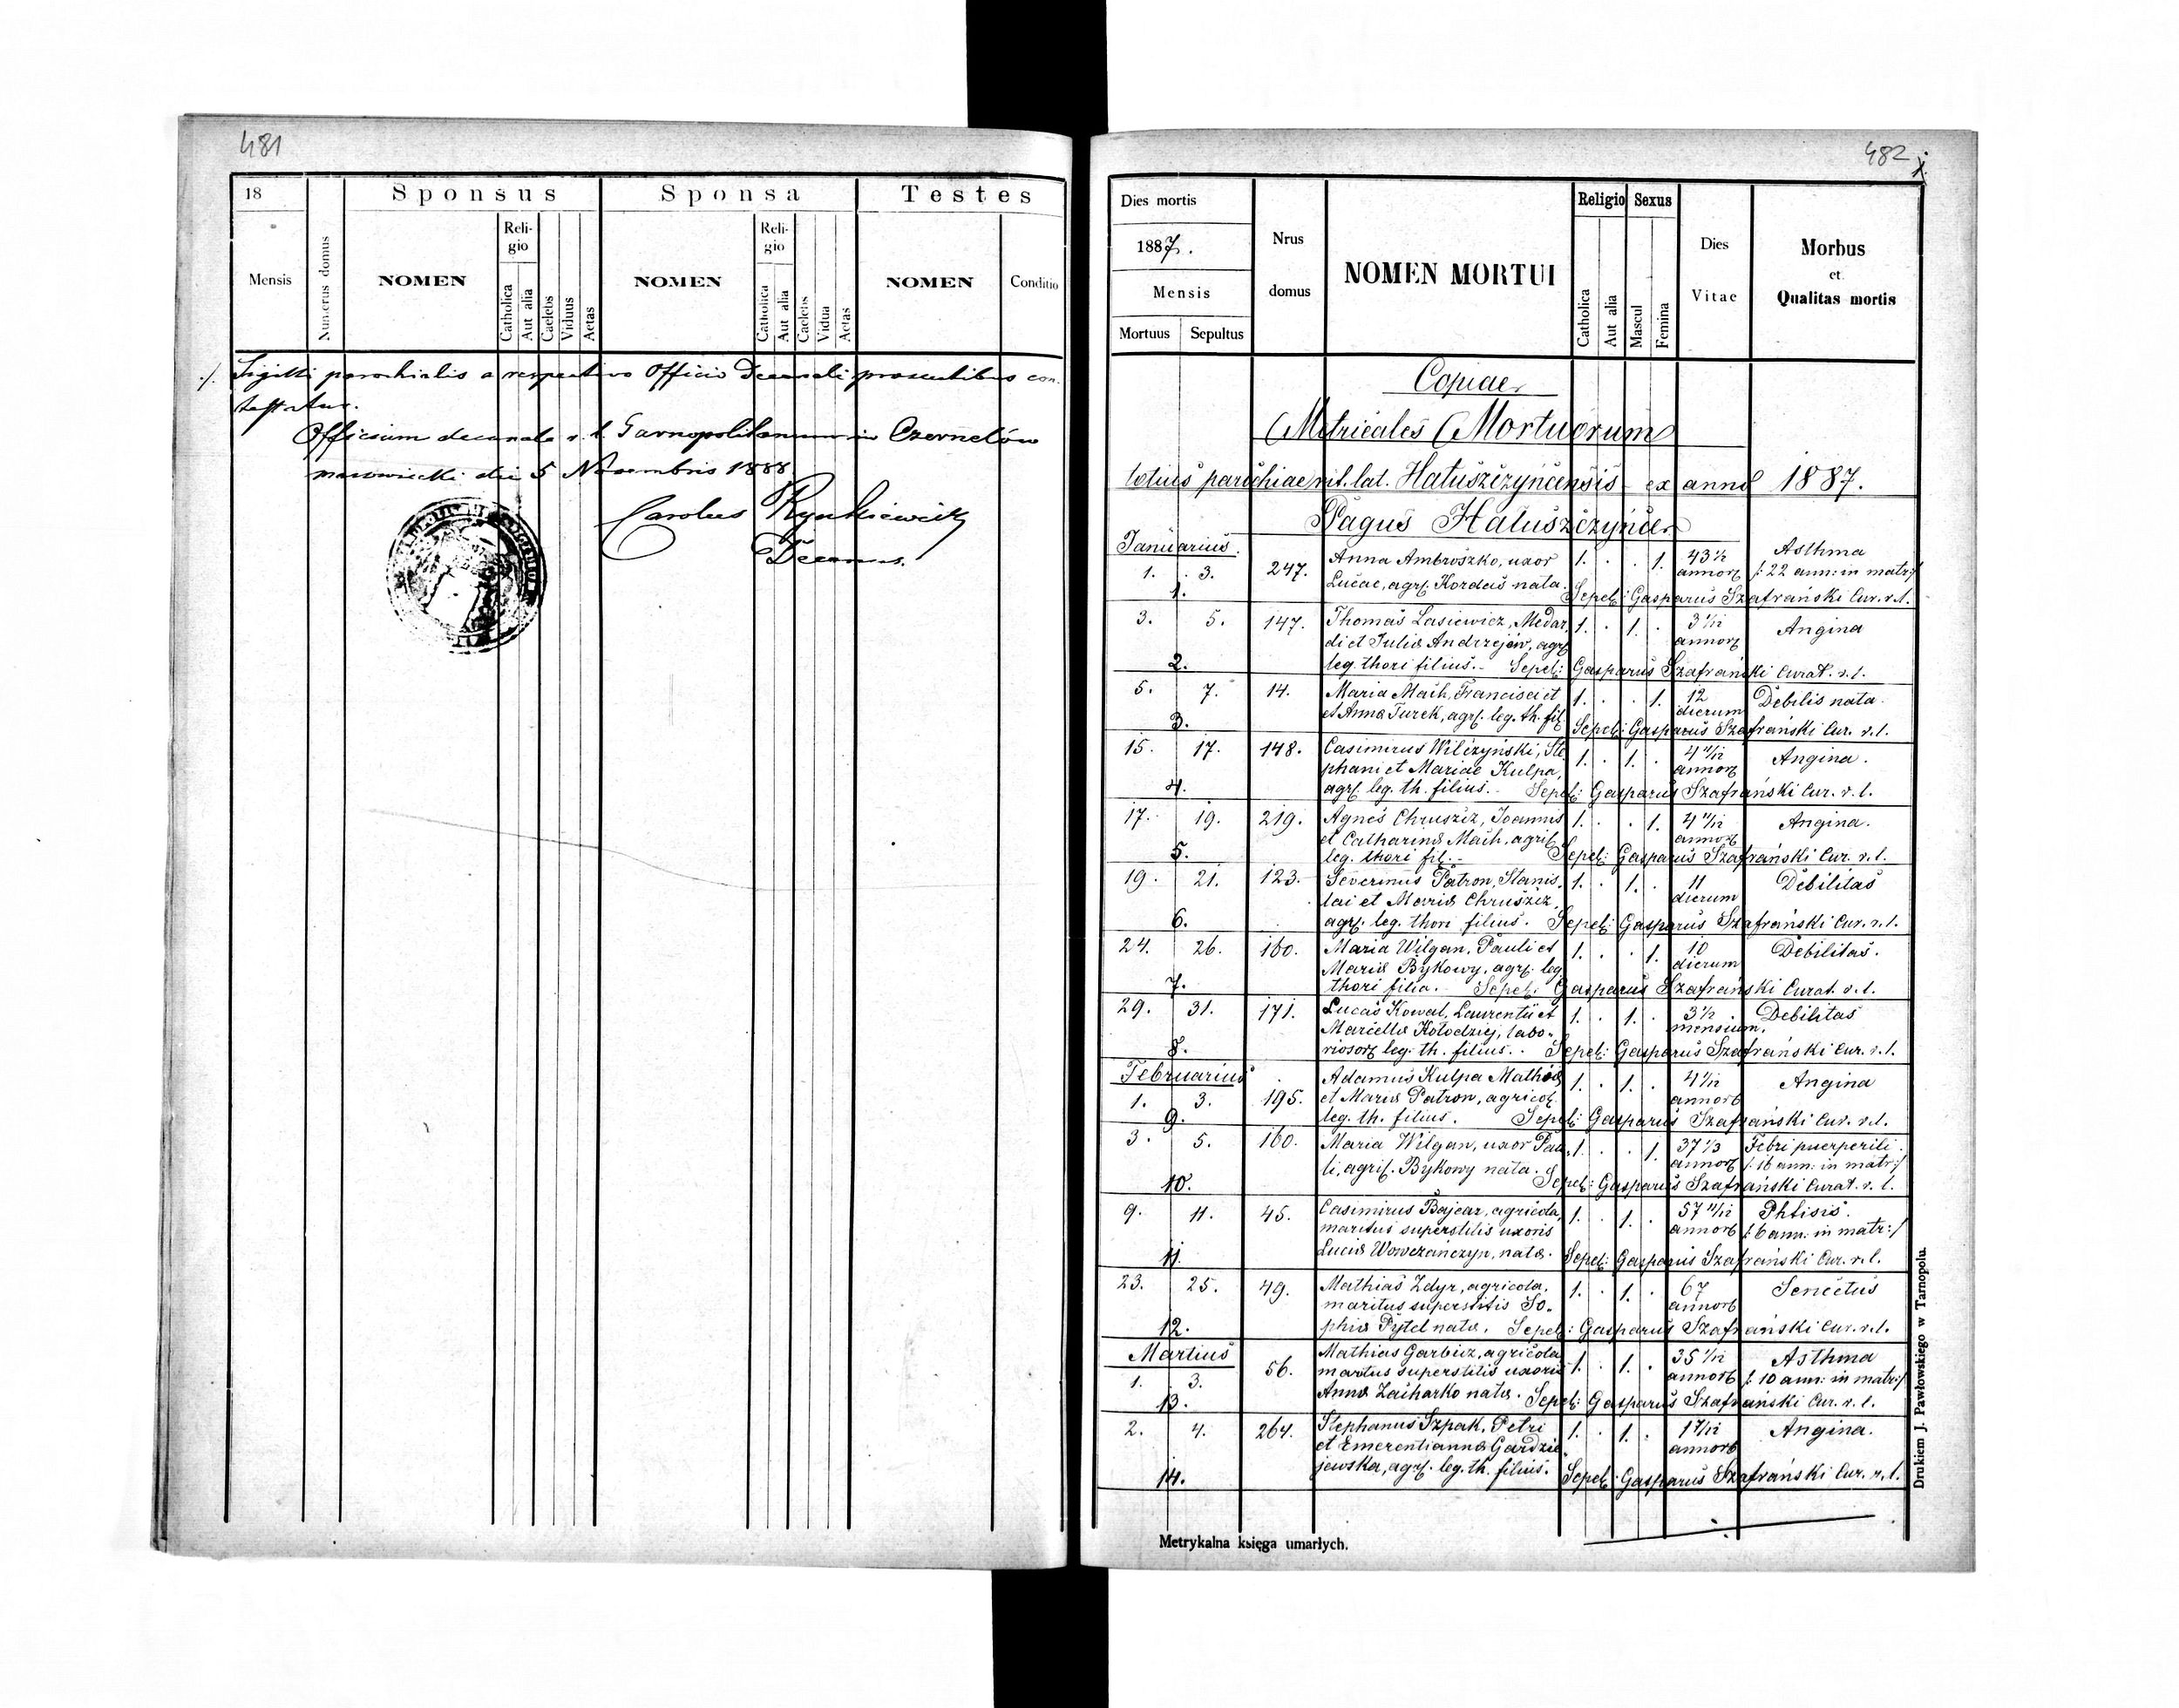 481
18
Mensis
Numerus domus
Sponsus
NOMEN
Reli-
gio
Catholica
Aut alia
Caelebs
Viduus
Aetas
Sponsa
NOMEN
Reli-
gio
Catholica
Aut alia
Caelebs
Vidua
Aetas
Testes
NOMEN
Conditio
./. Sigilli parochialis a respectivo Officio Decanali praesentibus con-
testatur.
Officium decanale r. l. Tarnopoliense in Czernelów
mazowiecki die 5 Novembris 1888.
Carolus
Decanus.
482
Dies mortis
1887.
Mensis
Mortuus Sepultus
Nrus
domus
NOMEN MORTUI
Religio
Catholica
Aut alia
Sexus
Mascul
Femina
Dies
Vitae
Morbus
et
Qualitas mortis
Copiae
Metricales Mortuorum
totius parochiae rit. lat. Hałuszczyńcensis ex anno 1887.
Pagus Hałuszczyńce
Januarius.
1. 3. 247. Anna Ambroszko, uxor 1. . . 1. 43 1/2 annor Asthma
1. Lucae, agr. Kordas nata. /: 22 ann: in matr:/
Sepel: Gasparus Szafrański Cur. r. l.
3. 5. 147. Thomas Lasiewicz, Medar- 1. . 1. . 3 1/12 annor Angina
di et Julia Andrzejów, agr.
2. leg. thori filius. - Sepel: Gasparus Szafrański Curat. r. l.
5. 7. 14. Maria Mach, Francisci et 1. . . 1. 12 dierum Debilis nata.
3. et Anna Turek, agr. leg. th. fil.
Sepel: Gasparus Szafrański Cur. r. l.
15. 17. 148. Casimirus Wilczyński, Ste- 1. . 1. . 4 11/12 annor Angina.
phani et Mariae Kulpa,
4. agr. leg. th. filius. - Sepel: Gasparus Szafrański Cur. r. l.
17. 19. 219. Agnes Chruszcz, Joannis 1. . . 1. 4 11/12 annor Angina.
et Catharina Mach, agric.
5. leg. thori fil. - Sepel: Gasparus Szafrański Cur. r. l.
19. 21. 123. Severinus Patron, Stanis- 1. . 1. . 11 dierum Debilitas
lai et Maria Chruszcz,
6. agr. leg. thori filius. Sepel: Gasparus Szafrański Cur. r. l.
24. 26. 160. Maria Wilgan, Pauli et 1. . . 1. 10 dierum Debilitas.
Maria Bykowy, agr. leg.
7. thori filia. - Sepel: Gasparus Szafrański Curat. r. l.
29. 31. 171. Lucas Kowal, Laurentii et 1. . 1. . 3 1/2 mensium. Debilitas
Marcella Kołodziej, labo-
8. riosor leg. th. filius. - Sepel: Gasparus Szafrański Cur. r. l.
Februarius
1. 3. 195. Adamus Kulpa Mathia 1. . 1. . 4 1/12 annor Angina
et Maria Patron, agricol.
9. leg. th. filius. Sepel: Gasparus Szafrański Cur. r. l.
3. 5. 160. Maria Wilgan, uxor Pau- 1. . . 1. 37 1/3 annor Febri puerperili.
li, agric. Bykowy nata. /: 16 ann: in matr:/
10. Sepel: Gasparus Szafrański Curat. r. l.
9. 11. 45. Casimirus Bajcar, agricola, 1. . 1. . 57 11/12 annor Phtisis.
maritus superstitis uxoris /: 6 ann: in matr:/
11. Lucia Wowczańczyn, nata. Sepel: Gasparus Szafrański Cur. r. l.
23. 25. 49. Mathias Zdyr, agricola, 1. . 1. . 67 annor Senectus
maritus superstitis So-
12. phia Pytel nata. Sepel: Gasparus Szafrański Cur. r. l.
Martius
1. 3. 56. Mathias Garbicz, agricola 1. . 1. . 35 1/12 annor Asthma
maritus superstitis uxoris /: 10 ann: in matr:/
13. Anna Zacharko nata. Sepel: Gasparus Szafrański Cur. r. l.
2. 4. 264. Stephanus Szpak, Petri 1. . 1. . annor Angina.
et Emerentianna Gardzie-
14. jewska, agr. leg. th. filius. Sepel: Gasparus Szafrański Cur. r. l.
Metrykalna księga umarłych.
Drukiem J. Pawłowskiego w Tarnopolu.